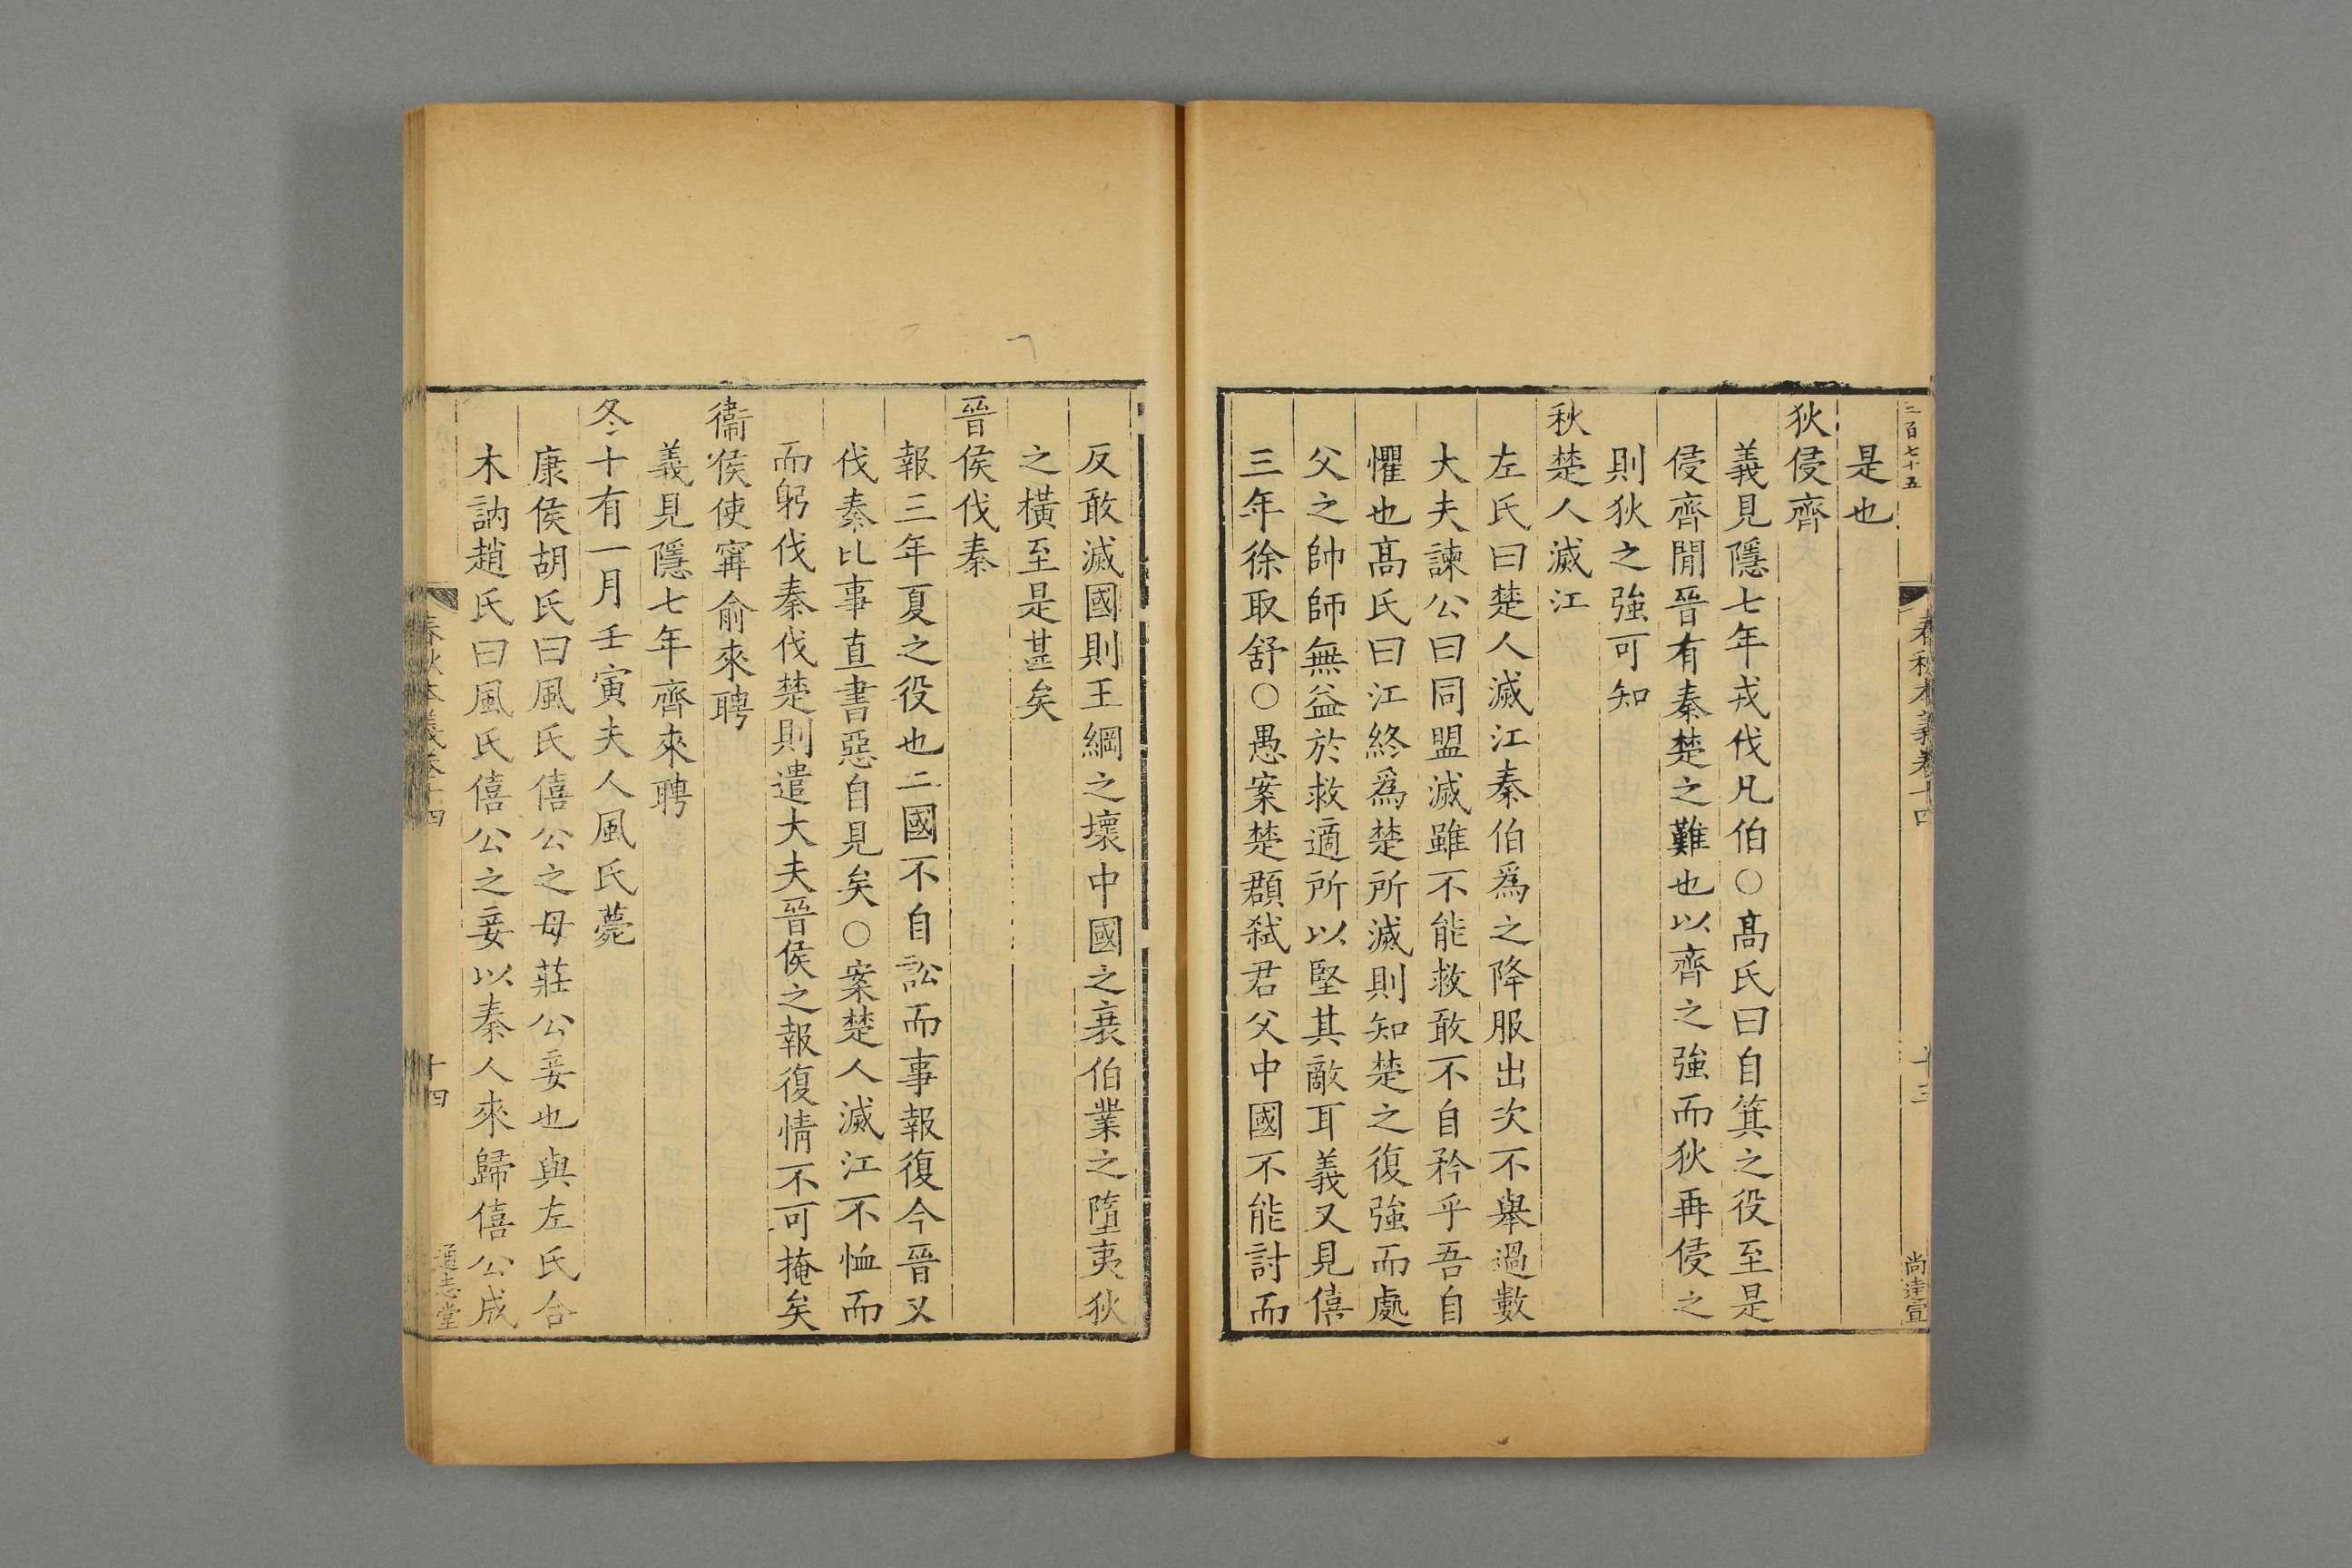 三百七十五
春秋本義卷十四
十三
尚達宣
是也
狄侵齊
義見隱七年戎伐凡伯○高氏曰自箕之役至是
侵齊閒晉有秦楚之難也以齊之強而狄再侵之
則狄之強可知
秋楚人滅江
左氏曰楚人滅江秦伯爲之降服出次不舉過數
大夫諫公曰同盟滅雖不能救敢不自矜乎吾自
懼也高氏曰江終爲楚所滅則知楚之復強而處
父之帥師無益於救適所以堅其敵耳義又見僖
三年徐取舒○愚案楚頵弑君父中國不能討而
反敢滅國則王綱之壞中國之衰伯業之墮夷狄
之橫至是甚矣
晉侯伐秦
報三年夏之役也二國不自訟而事報復今晉又
伐秦比事直書惡自見矣○案楚人滅江不恤而
而躬伐秦伐楚則遣大夫晉侯之報復情不可掩矣
衞侯使甯俞來聘
義見隱七年齊來聘
冬十有一月壬寅夫人風氏薨
康侯胡氏曰風氏僖公之母莊公妾也與左氏合
木訥趙氏曰風氏僖公之妾以秦人來歸僖公成
春秋本義卷十四
十四
通志堂